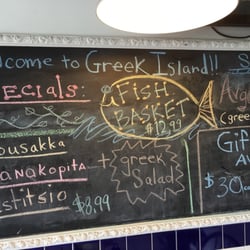 elcome to Greek Island!!
ecials:
Fish
Basket
$12.99
ousakka
anakopita
stitsio $8.99
+ greek
Salad
(gree
Gift
$30